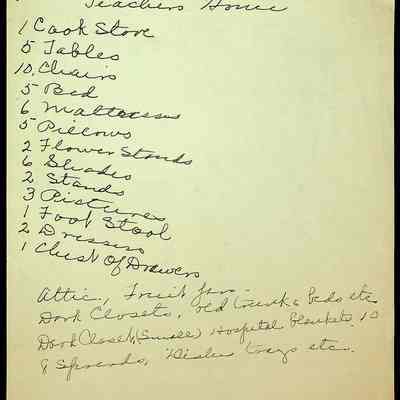 Teachers Home
1 Cook Stove
5 Tables
10, Chairs
5 Bed
6 Mattresses
5 Pillows
2 Flower Stands
6 Shades
2 Stands
3 Pictures
1 Foot Stool
2 Dressers
1 Chest Of Drawers
Attic, Fruit Jars.
Dark Closets, old trunks beds etc
Dark Closet, (Small) Hospital Blankets, 10
8 Spreads, Dishes trays etc.